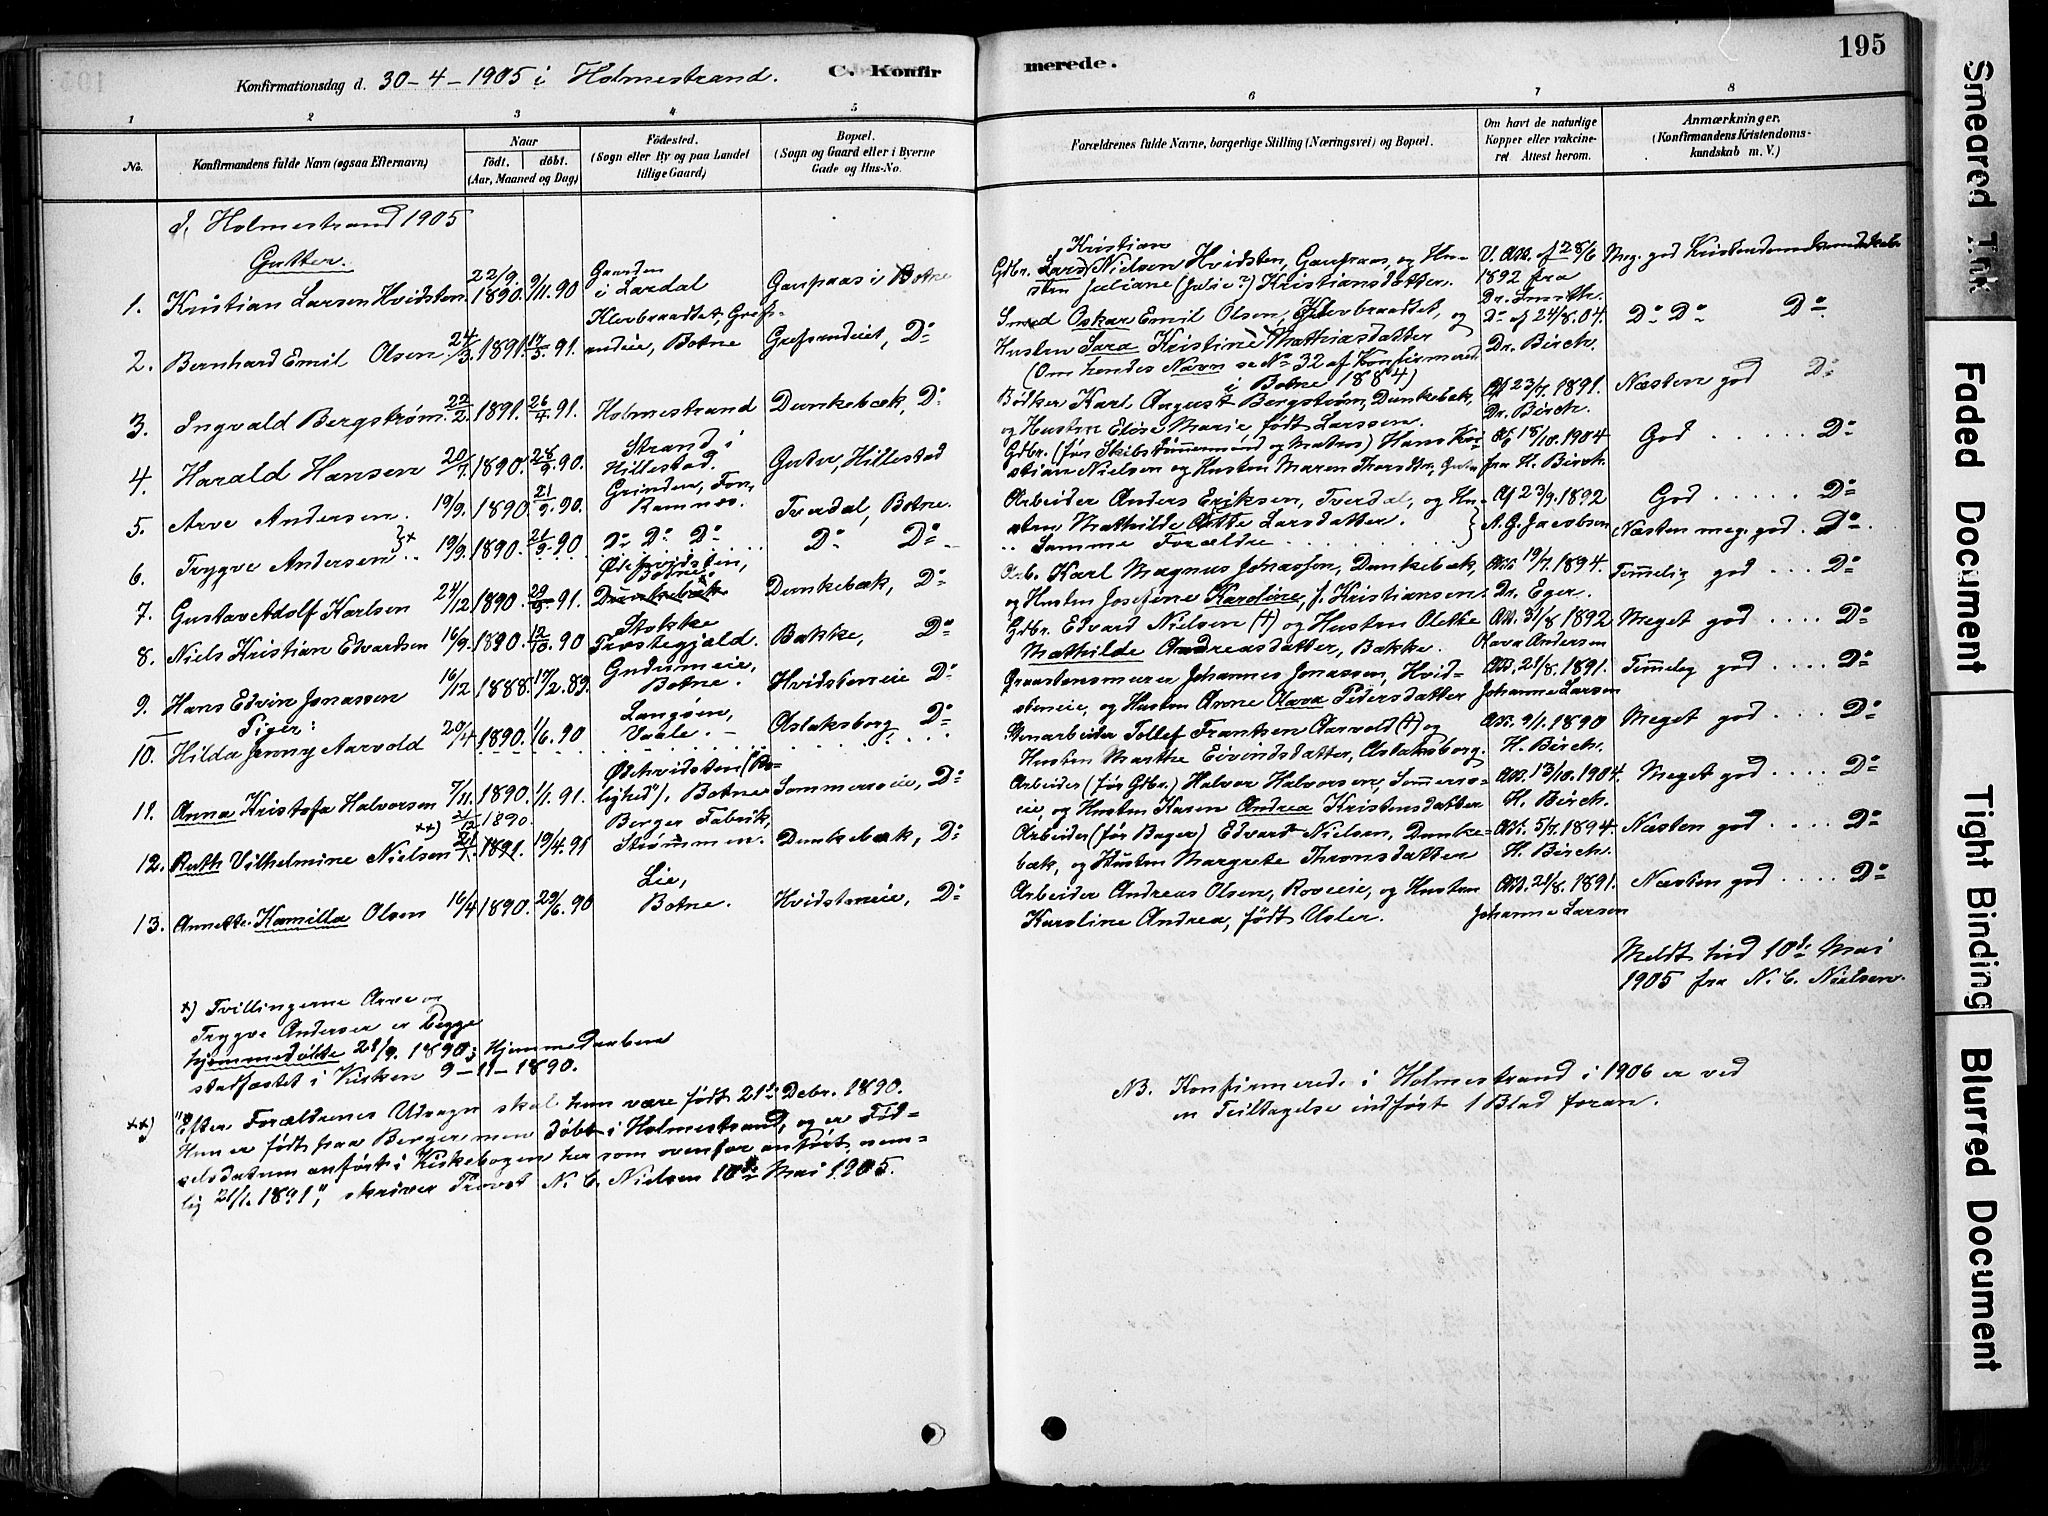 195
Konfirmationsdag d. 30-4-1905 i Holmestrand. C. Konfirmerede.
1 2 3 4 5 6 7 8
No.
Konfirmandens fulde Navn (ogsaa Efternavn)
Naar
født, døbt.
(Aar, Maaned og Dag)
Fødested.
(Sogn eller By og paa Landet
tillige Gaard)
Bopæl.
(Sogn og Gaard eller i Byerne
Gade og Hus-No.
Forældrenes fulde Navne, borgerlige Stilling (Næringsvei) og Bopæl.
Om havt de naturlige
Kopper eller vakcine-
ret Attest herom.
Anmærkninger.
(Konfirmandens Kristendoms-
kundskab m. V.)
i Holmestrand 1905
Gutter.
1. Kristian Larsen Hvidsten 22/9. 1890. 9/11. 90 Gaarden i Lardal Gaupaas i Botne
Gdbr. Lars Kristian Nielsen Hvidsten, Gaupaas, og Hu-
sten Juliane (Julie?) Kristiansdatter.
V. Att. af 28/6
1892 fra
Dr. Smith.
Meg. god Kristendomskundskab
2. Bernhard Emil Olsen 24/3. 1891. 17/5. 91. Klevbraadtet, Grefs-
andeie, Botne Grefsandeiet, Do
Smed Oskar Emil Olsen, Klevbraadtet, og
Husten Sara Kristine Mathiasdatter
(Om hendes Navn se No 32 af Konfirmered.
i Botne 1884)
Do af 24/8.04.
Dr. Birch.
Do Do Do
3. Ingvald Bergstrøm. 22/2. 1891. 26/4. 91. Holmestrand Dunkebæk, Do
Bødker Karl August Bergstrøm, Dunkebæk,
og Husten Elise Marie født Larssen.
Af 23/7. 1891.
Dr. Birch.
Næsten god Do
4. Harald Hansen 20/7. 1890. 28/9. 90. Strand i
Hillestad. Gutu, Hillestad
Gdbr. (før Skibstømmermand og Matros) Hans Kri-
stian Nielsen og Husten Maren Thorsdtr., Gutu
Af 18/10. 1904
fra H. Birch.
God . . . . . . Do
5. Arve Andersen. 19/9. 1890. 21/9. 90. Grinden, Fon,
Ramnæs. Tverdal, Botne.
Arbeider Anders Eriksen, Tverdal, og Hu-
sten Mathilde Larsdatter.
Af 23/9. 1892
A. G. Jacobsen
God . . . . . Do
6. Trygve Andersen }x 19/9. 1890. 21/9. 90 Do Do Do Do Do
Samme Forældre
Næsten meg. god. Do
7. Gustav Adolf Karlsen 24/12 1890. 29/3. 91. Ødehvidsten,
Botne.
Dunkebæk Dunkebæk, Do
Arb. Karl Magnus Johansson, Dunkebæk,
og Husten Josefine Karoline, f. Kristiansen.
Att. 19/7. 1894.
Dr. Eger.
Temmelig god . . . Do
8. Niels Kristian Edvardsen 16/9. 1890. 12/10. 90 Stokke
Præstegjæld. Bakke, Do
Gdbr. Edvard Nielsen (†) og Husten Olette
Mathilde Andreasdatter, Bakke.
Att. 31/8 1892
Olava Andersen
Meget god . . . . Do
9. Hans Edvin Jonassen 16/12 1888. 17/2. 89. Gudumeie,
Botne. Hvidsteneie Do
Graastensmurer Johannes Jonassen, Hvid-
steneie, og Husten Anne Olava Pedersdatter
Att. 21/8. 1891.
Johanne Larsen
Temmelig god . . . . Do
Piger:
10. Hilda Jenny Aarvold 20/4 1890. 1/6. 90 Langøen,
Vaale. Aslaksborg Do
Stenarbeider Tollef Frantsen Aarvold (†) og
Husten Marthe Eivindsdatter, Aslaksborg.
Att. 9/1. 1890
H. Birch.
Meget god . . . . Do
11. Anna Kristofa Halvorsen 7/11. 1890. 1/1. 91. Ødehvidsten ("Ro-
lighed"), Botne Sommeroeie, Do
Arbeider (før Gdbr.) Halvor Halvorsen, Sommerro-
eie, og Husten Karen Andrea Kristensdatter
Att. 13/10. 1904.
H. Birch.
Meget god . . . . Do
12. Ruth Vilhelmine Nielsen xx) 21/12 1890
21/1. 1891. 19/4. 91 Berger Fabrik,
Strømmen. Dunkebæk, Do
Arbeider (før Bager) Edvard Nielsen, Dunke-
bæk, og Husten Margrete Thronsdatter
Att. 5/7. 1894.
H. Birch.
Næsten god . . . . Do
13. Annette Kamilla Olsen 16/4 1890. 29/6. 90 Lie,
Botne. Hvidsteneie, Do
Arbeider Andreas Olsen, Roveeie, og Husten
Karoline Andrea, født Usler.
Att. 21/8. 1891.
Johanne Larsen
Næsten god . . . . Do
Meldt hid 10de Mai
1905 fra N. C. Nielsen.
x) Tvillingerne Arve og
Trygve Andersen er begge
hjemmedøbte 21/9. 1890; Hjemmedaaben
stadfæstet i Kirken 9-11-1890.
xx) "Efter Forældrenes Udsagn skal hun være født 21de Debr. 1890.
Hun er født paa Berger men døbt i Holmestrand, og er Fød-
selsdatum anført i Kirkebogen her som ovenfor anført, nem-
lig 21/1. 1891", skriver Provst N. C. Nielsen 10de Mai 1905.
NB. Konfirmerede i Holmestrand i 1906 er ved
en Feiltagelse indført 1 Blad foran.
Smeared Ink
Faded Document
Tight Binding
Blurred Document